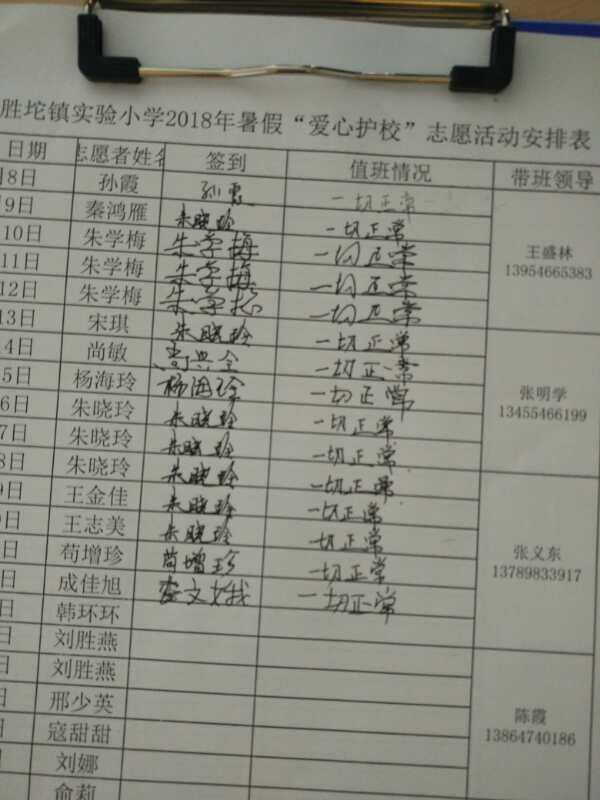 胜坨镇实验小学2018年暑假“爱心护校”志愿活动安排表
日期 志愿者姓名 签到 值班情况 带班领导
8日 孙霞 孙霞 一切正常
9日 秦鸿雁 朱晓玲 一切正常
10日 朱学梅 朱学梅 一切正常 王盛林
11日 朱学梅 朱学梅 一切正常 13954665383
12日 朱学梅 朱学梅 一切正常
13日 宋琪 朱晓玲 一切正常
4日 尚敏 一切正常
5日 杨海玲 杨海玲 一切正常 张明学
6日 朱晓玲 朱晓玲 一切正常 13455466199
7日 朱晓玲 朱晓玲 一切正常
8日 朱晓玲 朱晓玲 一切正常
9日 王金佳 朱晓玲 一切正常
日 王志美 朱晓玲 一切正常 张义东
日 荀增珍 荀增珍 一切正常 13789833917
日 成佳旭 一切正常
日 韩环环
日 刘胜燕
日 刘胜燕
日 邢少英 陈霞
日 寇甜甜 13864740186
刘娜
俞莉